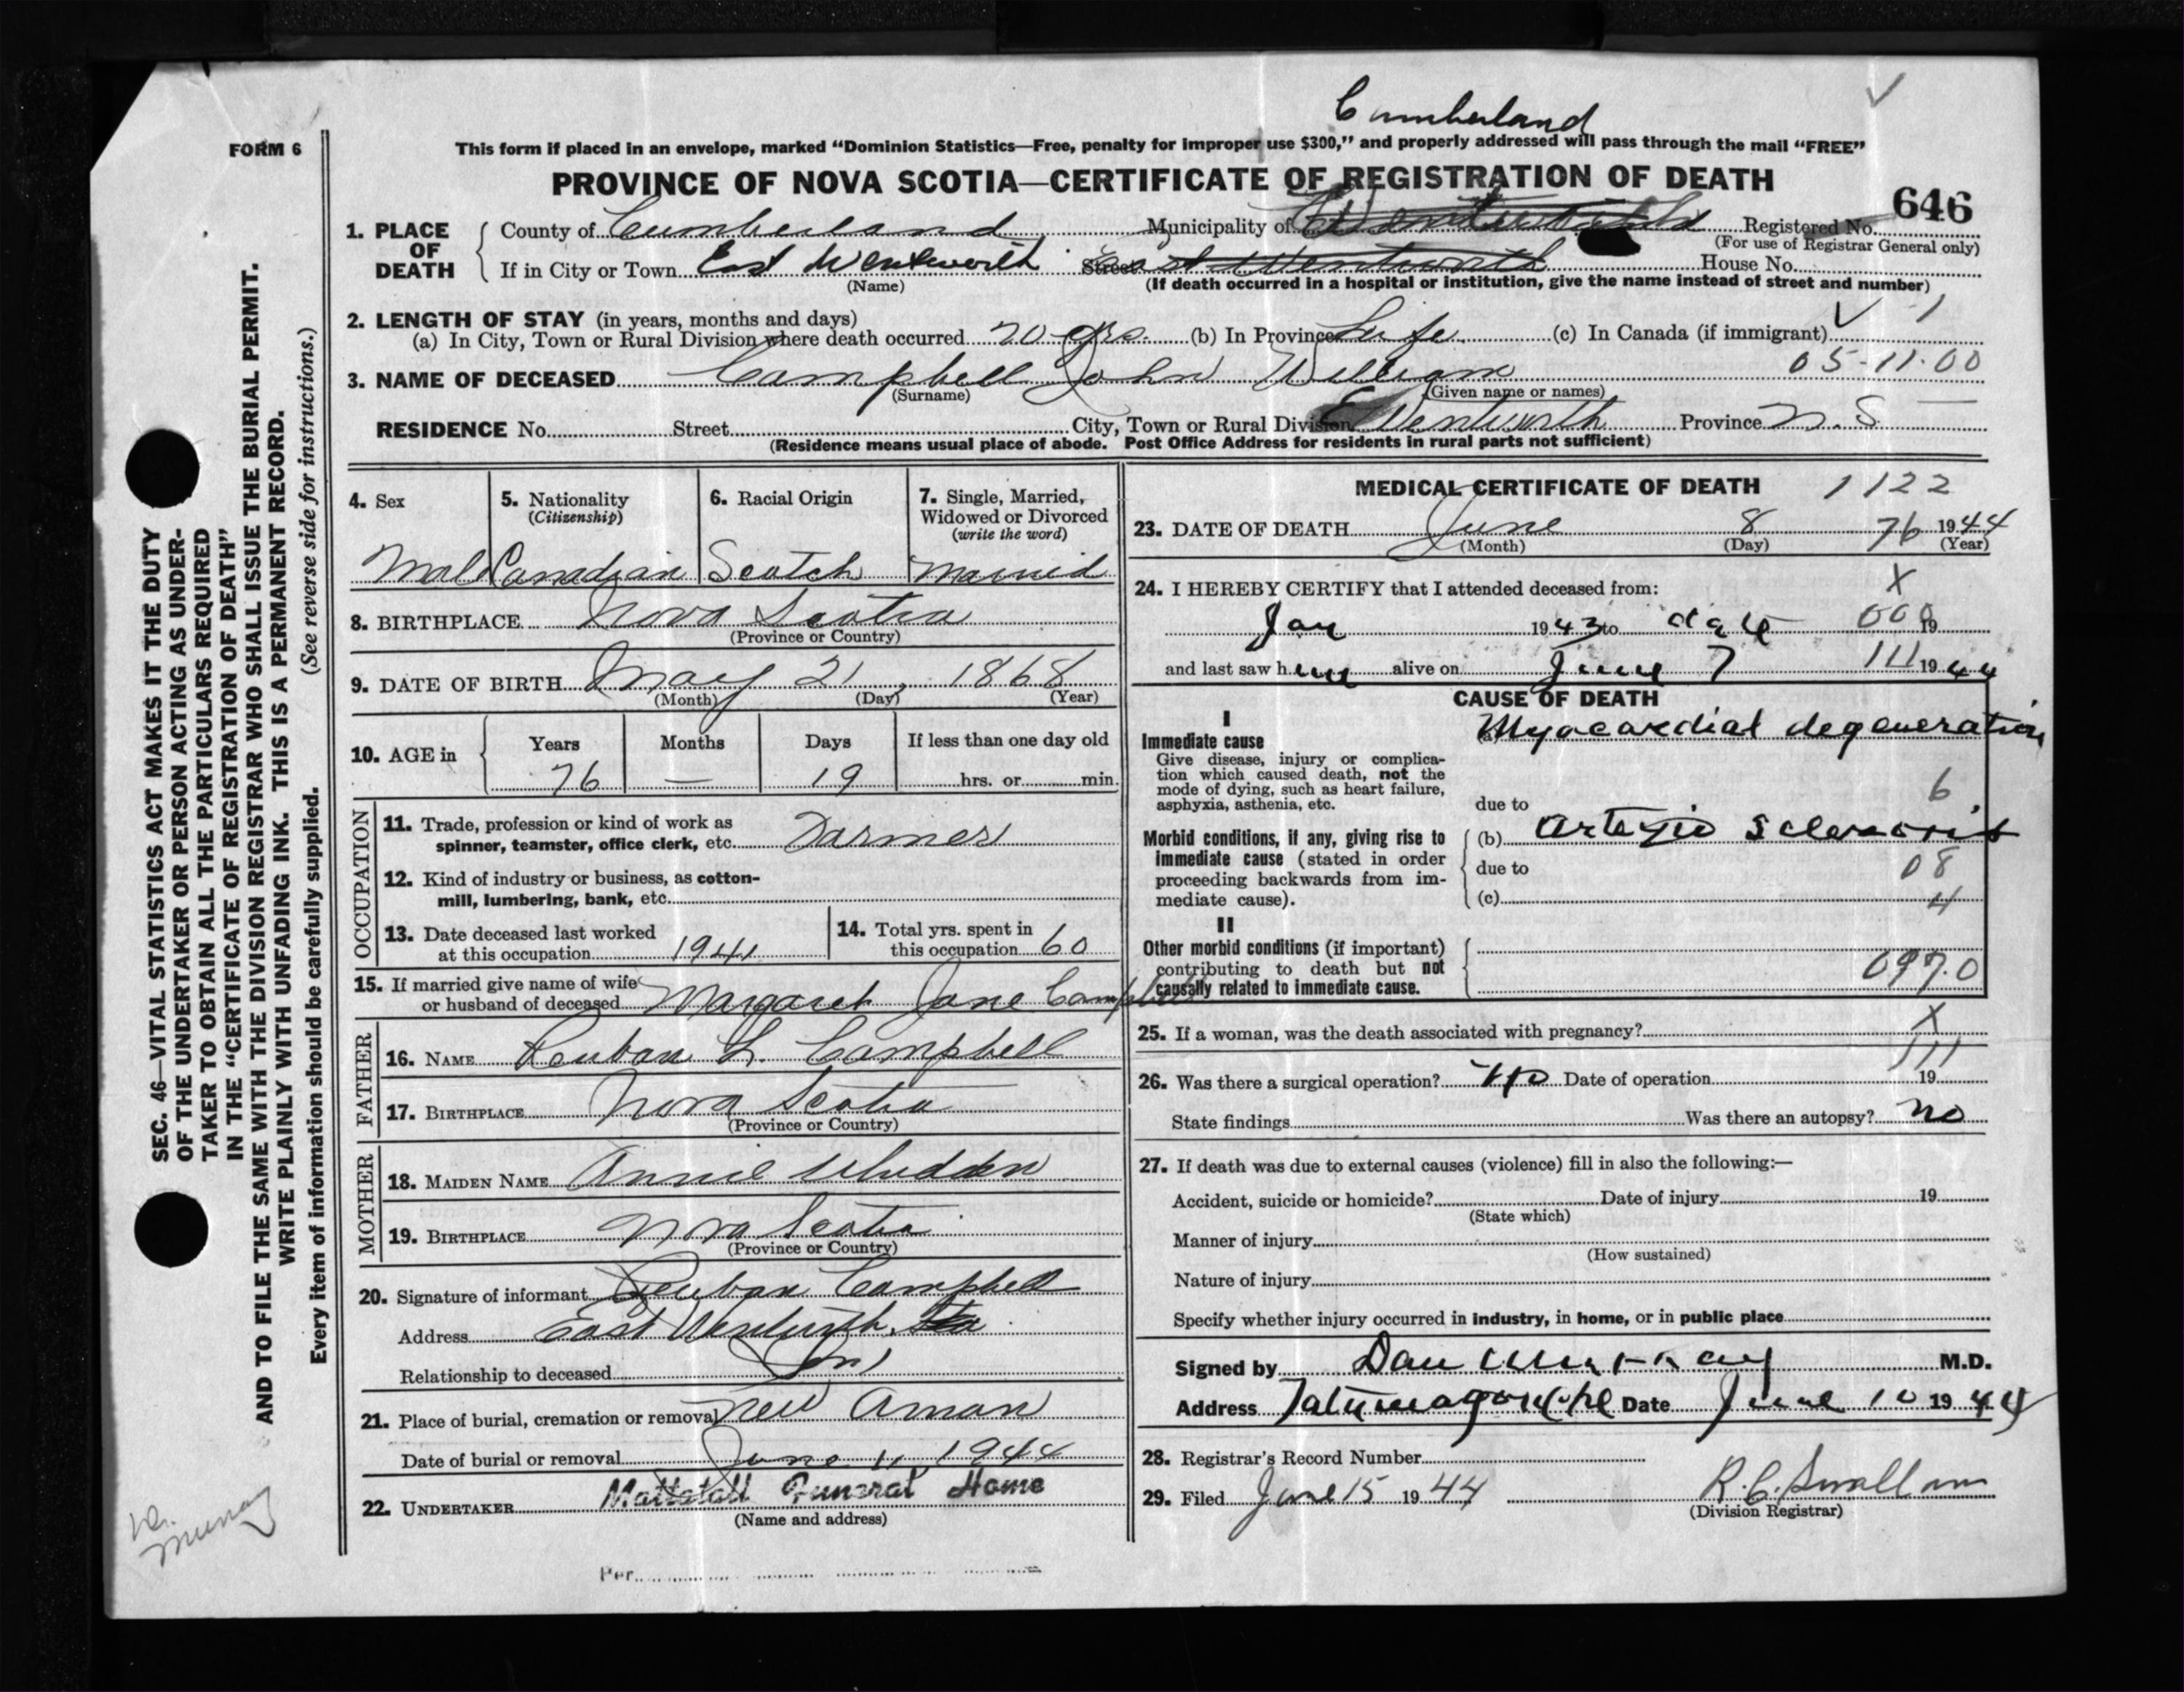 Cumberland
FORM 6
This form if placed in an envelope, marked “Dominion Statistics—Free, penalty for improper use $300,” and properly addressed will pass through the mail “FREE”
PROVINCE OF NOVA SCOTIA—CERTIFICATE OF REGISTRATION OF DEATH
646
1. PLACE OF DEATH
County of Cumberland Municipality of Registered No.
(For use of Registrar General only)
If in City or Town East Wentworth Street East Wentworth House No.
(Name) (If death occurred in a hospital or institution, give the name instead of street and number)
2. LENGTH OF STAY (in years, months and days) 1
(a) In City, Town or Rural Division where death occurred 70 yrs. (b) In Province Life. (c) In Canada (if immigrant)
05-11-00
3. NAME OF DECEASED Campbell John William
(Surname) (Given name or names)
RESIDENCE No. Street City, Town or Rural Division E Wentworth Province N.S.
(Residence means usual place of abode. Post Office Address for residents in rural parts not sufficient)
4. Sex 5. Nationality (Citizenship) 6. Racial Origin 7. Single, Married, Widowed or Divorced (write the word)
Male Canadian Scotch Married
8. BIRTHPLACE Nova Scotia
(Province or Country)
9. DATE OF BIRTH May 21, 1868
(Month) (Day) (Year)
10. AGE in Years Months Days If less than one day old
76 — 19 hrs. or min.
OCCUPATION
11. Trade, profession or kind of work as
spinner, teamster, office clerk, etc. Farmer
12. Kind of industry or business, as cotton-
mill, lumbering, bank, etc.
13. Date deceased last worked
at this occupation 1941
14. Total yrs. spent in
this occupation 60
15. If married give name of wife
or husband of deceased Margaret Jane Campbell
FATHER
16. NAME Reuban L. Campbell
17. BIRTHPLACE Nova Scotia
(Province or Country)
MOTHER
18. MAIDEN NAME Annie Whidden
19. BIRTHPLACE Nova Scotia
(Province or Country)
20. Signature of informant Reuban Campbell
Address East Wentworth, Sta
Relationship to deceased Son
21. Place of burial, cremation or removal New Aman
Date of burial or removal June 11, 1944
22. UNDERTAKER Mattatall Funeral Home
(Name and address)
Per
MEDICAL CERTIFICATE OF DEATH 1122
23. DATE OF DEATH June 8 76 1944
(Month) (Day) (Year)
24. I HEREBY CERTIFY that I attended deceased from: X
Jan 1943 to date 000 19
and last saw him alive on June 7 111 1944
CAUSE OF DEATH
I
Immediate cause
Give disease, injury or complica-
tion which caused death, not the
mode of dying, such as heart failure,
asphyxia, asthenia, etc.
(a) Myocardial degeneration
6
due to
Morbid conditions, if any, giving rise to
immediate cause (stated in order
proceeding backwards from im-
mediate cause).
(b) Arterio Sclerosis
due to 08
(c) 4
II
Other morbid conditions (if important)
contributing to death but not
causally related to immediate cause.
097.0
25. If a woman, was the death associated with pregnancy? X
111
26. Was there a surgical operation? No Date of operation 19
State findings Was there an autopsy? no
27. If death was due to external causes (violence) fill in also the following:—
Accident, suicide or homicide? Date of injury 19
(State which)
Manner of injury
(How sustained)
Nature of injury
Specify whether injury occurred in industry, in home, or in public place
Signed by Dan Murray M.D.
Address Tatamagouche Date June 10 1944
28. Registrar's Record Number
29. Filed June 15 1944
(Division Registrar)
SEC. 46—VITAL STATISTICS ACT MAKES IT THE DUTY
OF THE UNDERTAKER OR PERSON ACTING AS UNDER-
TAKER TO OBTAIN ALL THE PARTICULARS REQUIRED
IN THE “CERTIFICATE OF REGISTRATION OF DEATH”
AND TO FILE THE SAME WITH THE DIVISION REGISTRAR WHO SHALL ISSUE THE BURIAL PERMIT.
WRITE PLAINLY WITH UNFADING INK. THIS IS A PERMANENT RECORD.
Every item of information should be carefully supplied. (See reverse side for instructions.)
Dr.
Murray